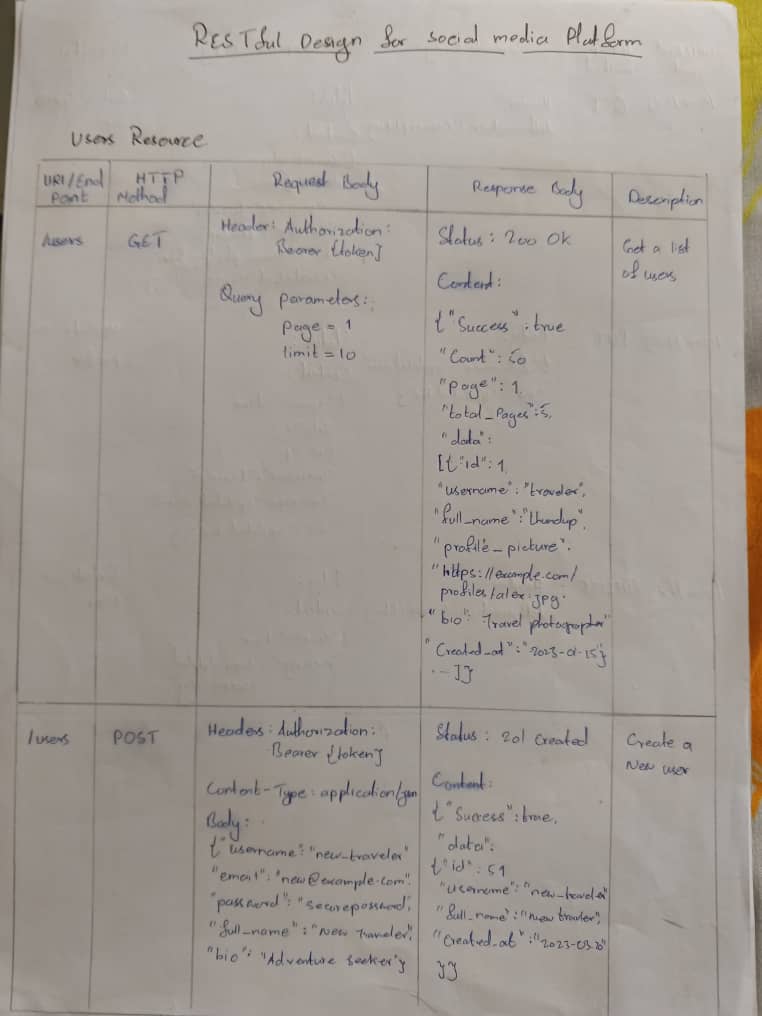 RESTful Design for social media Platform
Users Resource
URI/End Point
HTTP Method
Request Body
Response Body
Description
/users
GET
Header: Authorization:
Bearer {token}
Query parameters:
page = 1
limit = 10
Status: 200 Ok
Content:
{"Success": true
"Count": 50
"page": 1,
"total_Pages": 5,
"data":
[{"id": 1,
"username": "traveler",
"full_name": "thundup",
"profile_picture":
"https://example.com/
profiles/alex.jpg.
"bio": Travel photographer"
"Created_at": "2023-01-15"}
...]}
Get a list
of users
/users
POST
Headers: Authorization:
Bearer {token}
Content-Type: application/json
Body:
{"username": "new_traveler"
"email": "new@example.com".
"password": "securepassword",
"full_name": "New Traveler",
"bio": "Adventure seeker"}
Status: 201 Created
Content:
{"Success": true,
"data":
{"id": 51
"username": "new_traveler"
"full_name": "New traveler",
"Created_at": "2023-03-20"
}}
Create a
New user